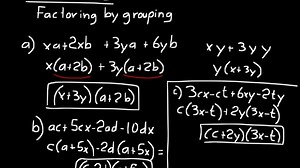 Factoring by grouping
a) xa+2xb +3ya+6yb
x(a+2b)+3y(a+2b)
(x+3y)(a+2b)
xy+3yy
y(x+3y)
b) ac+5cx-2ad-10dx
c(a+5x)-2d(a+5x)=
c) 3cx-ct+6xy-2ty
c(3x-t)+2y(3x-t)
(c+2y)(3x-t)